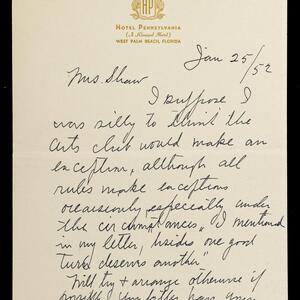 HP
HOTEL PENNSYLVANIA
WEST PALM BEACH, FLORIDA
Jan 25/52
Mrs. Shaw
I suppose I
was silly to think the
arts club would make an
exception, although all
rules make exceptions
occasionly, especially under
the circumstances, I mentioned
in my letter, besides one good
turn deserves another"
Will try & arrange otherwise if
possible